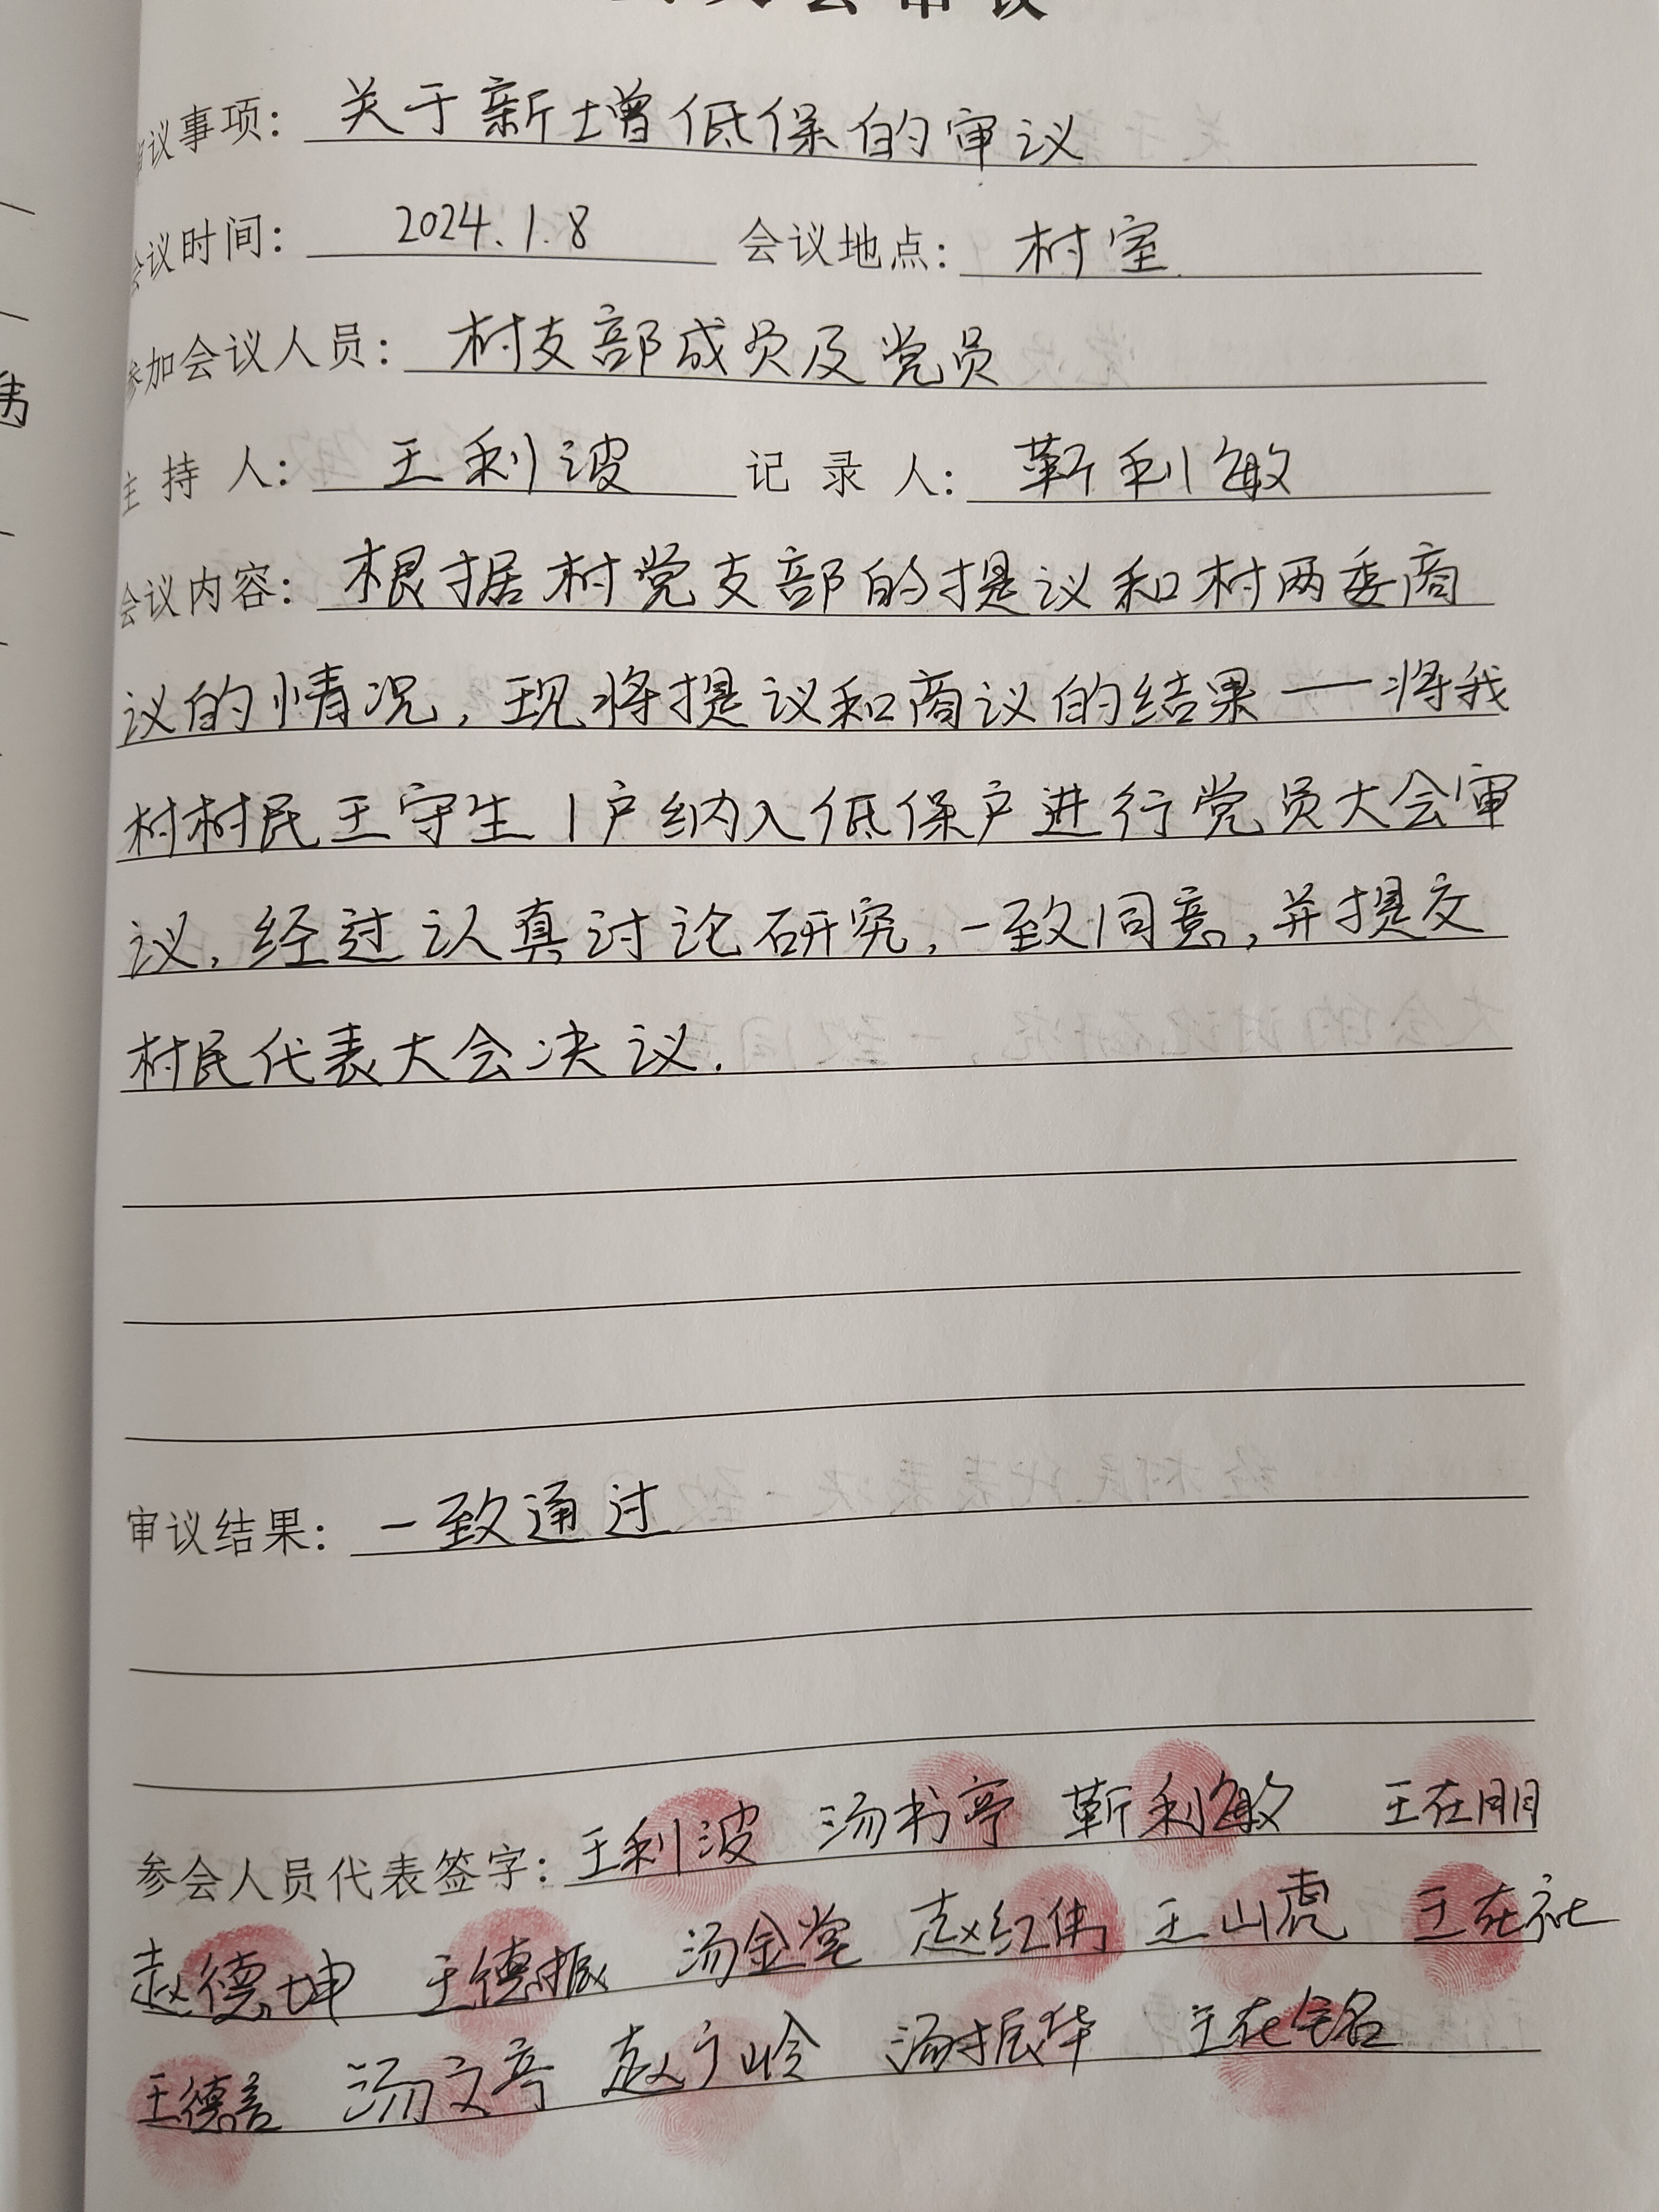 审议事项：关于新增低保的审议
会议时间：2024.1.8 会议地点：村室
参加会议人员：村支部成员及党员
主持人：王利波 记录人：靳利敏
会议内容：根据村党支部的提议和村两委商
议的情况，现将提议和商议的结果——将我
村村民王守生1户纳入低保户进行党员大会审
议，经过认真讨论研究，一致同意，并提交
村民代表大会决议.
审议结果：一致通过
参会人员代表签字：王利波 汤书亭 靳利敏 王在朋
赵德坤 王德振 汤金堂 赵红伟 王山虎 王在社
王德言 汤文亭 赵宁岭 汤振华